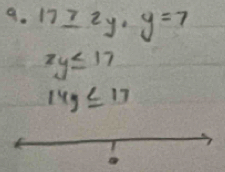 9. 17 ≥ 2y, y = 7
2y ≤ 17
14y ≤ 17
0